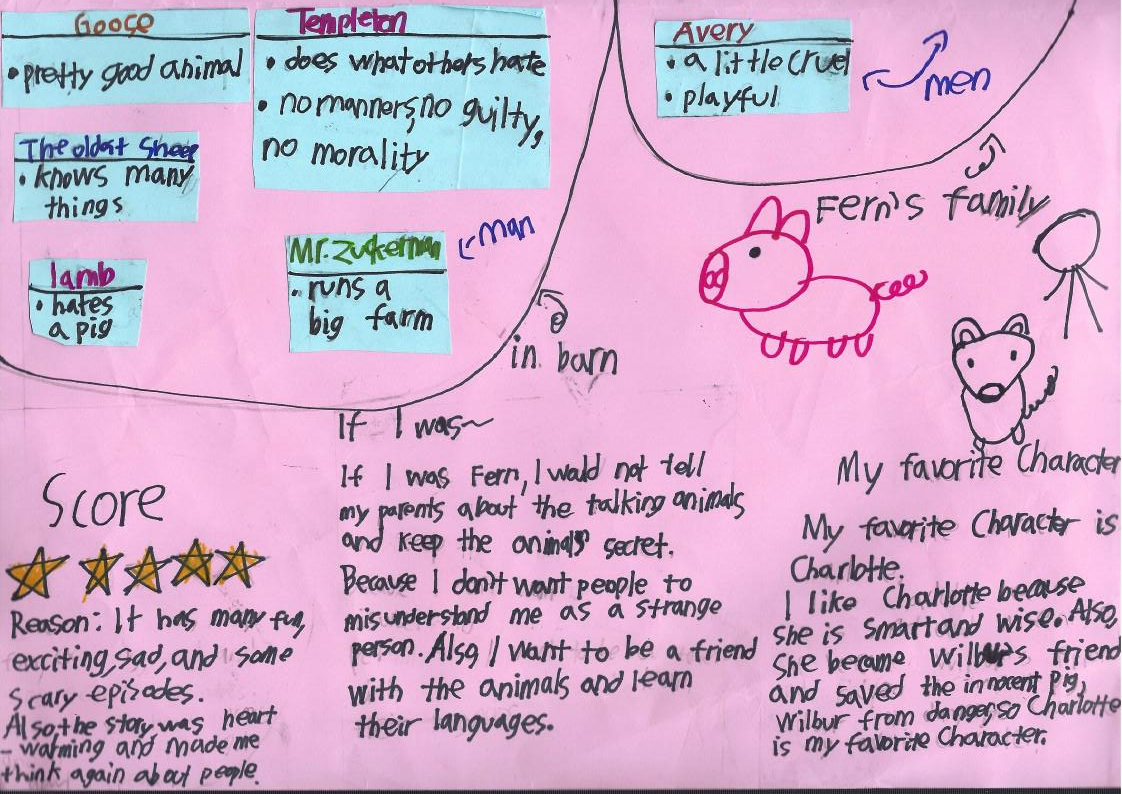 Goose
• pretty good animal
Templeton
• does what others hate
• no manners, no guilty,
no morality
The oldest sheep
• knows many
things
lamb
• hates
a pig
Mr. Zuckerman
• runs a
big farm
man
in barn
Avery
• a little cruel
• playful
men
Fern's family
Score
Reason: It has many fun,
exciting, sad, and some
scary episodes.
Also, the story was heart
- warming and made me
think again about people.
If I was~
If I was Fern, I would not tell
my parents about the talking animals
and keep the animals' secret.
Because I don't want people to
misunderstand me as a strange
person. Also, I want to be a friend
with the animals and learn
their languages.
My favorite Character
My favorite Character is
Charlotte.
I like Charlotte because
she is smart and wise. Also,
she became Wilbur's friend
and saved the innocent pig,
Wilbur from danger, so Charlotte
is my favorite Character.